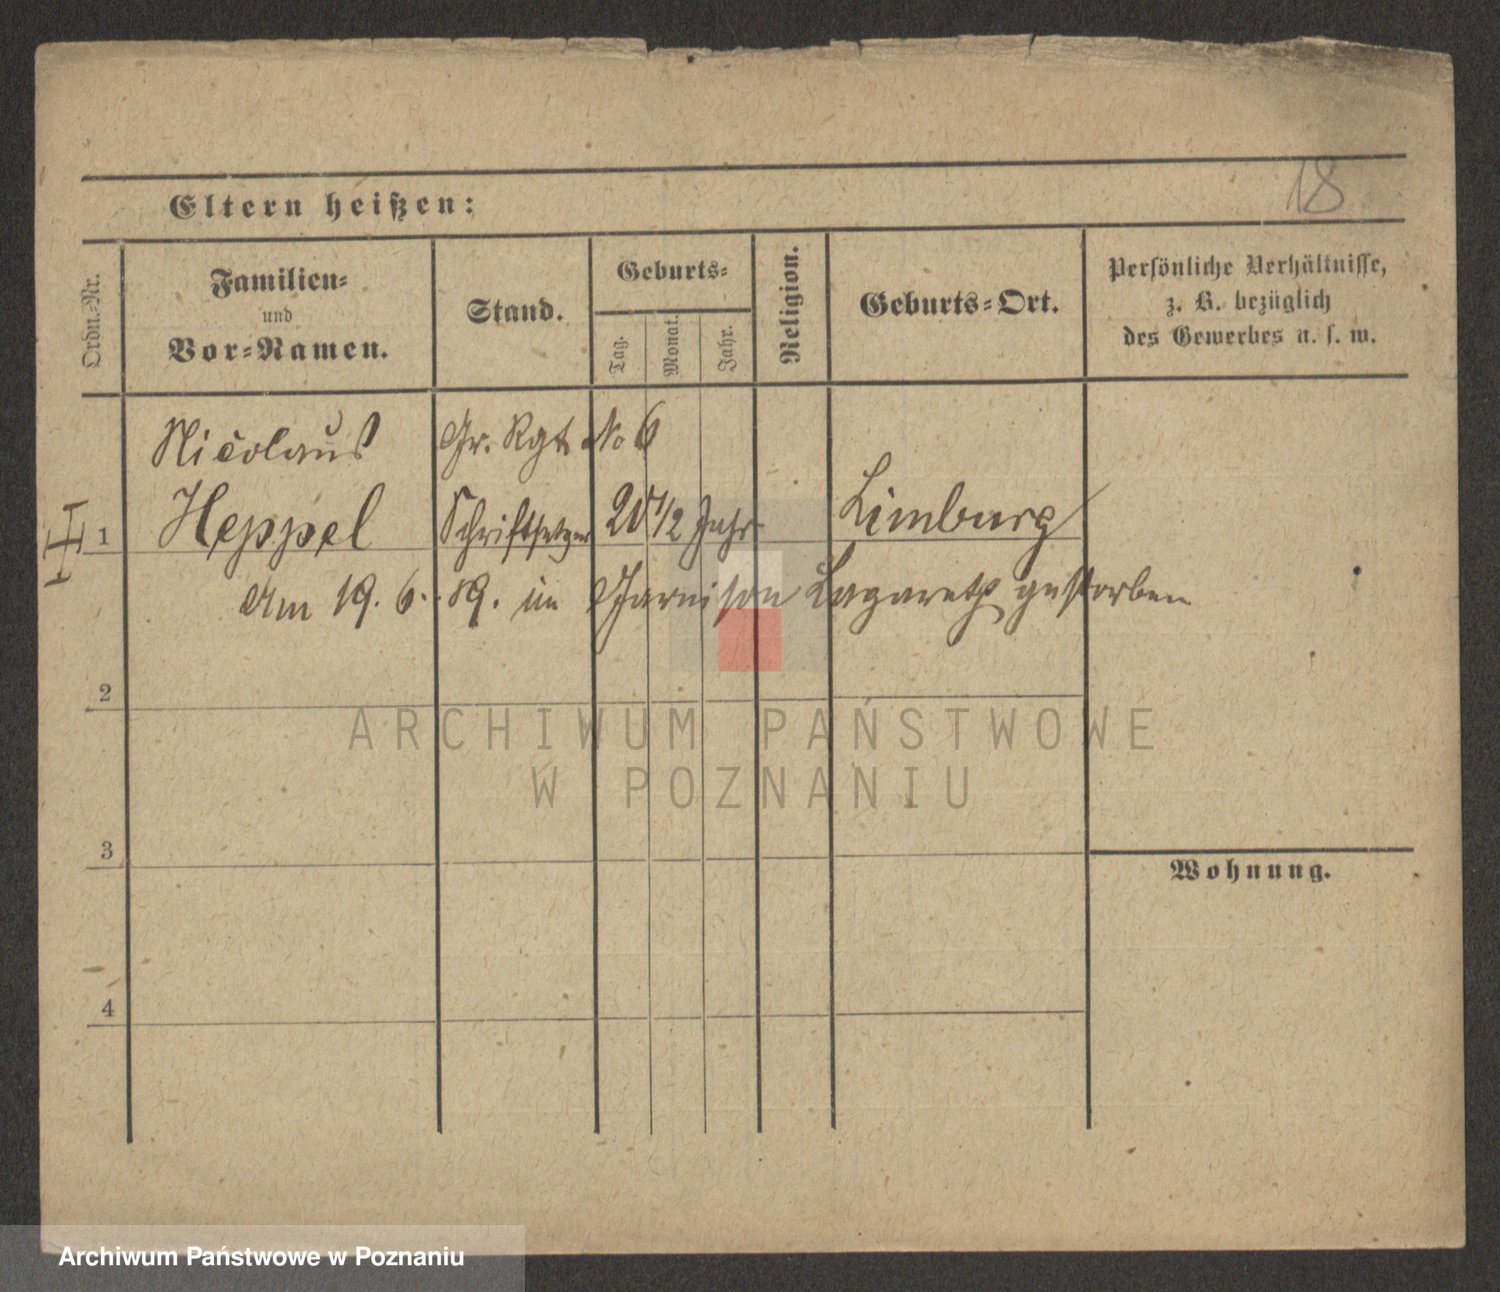 18
Eltern heißen:
Ordn.-Nr.
Familien-
und
Vor-Namen.
Stand.
Geburts-
Tag.
Monat.
Jahr.
Religion.
Geburts-Ort.
Persönliche Verhältnisse,
z. B. bezüglich
des Gewerbes u. s. w.
Nicolaus Gr. Rgt. No 6
1 Heppel Schriftsetzer 20 1/2 Jahr Limburg
Am 19. 6. 89. im Garnison Lazareth gestorben
2
ARCHIWUM PAŃSTWOWE
W POZNANIU
3
Wohnung.
4
Archiwum Państwowe w Poznaniu